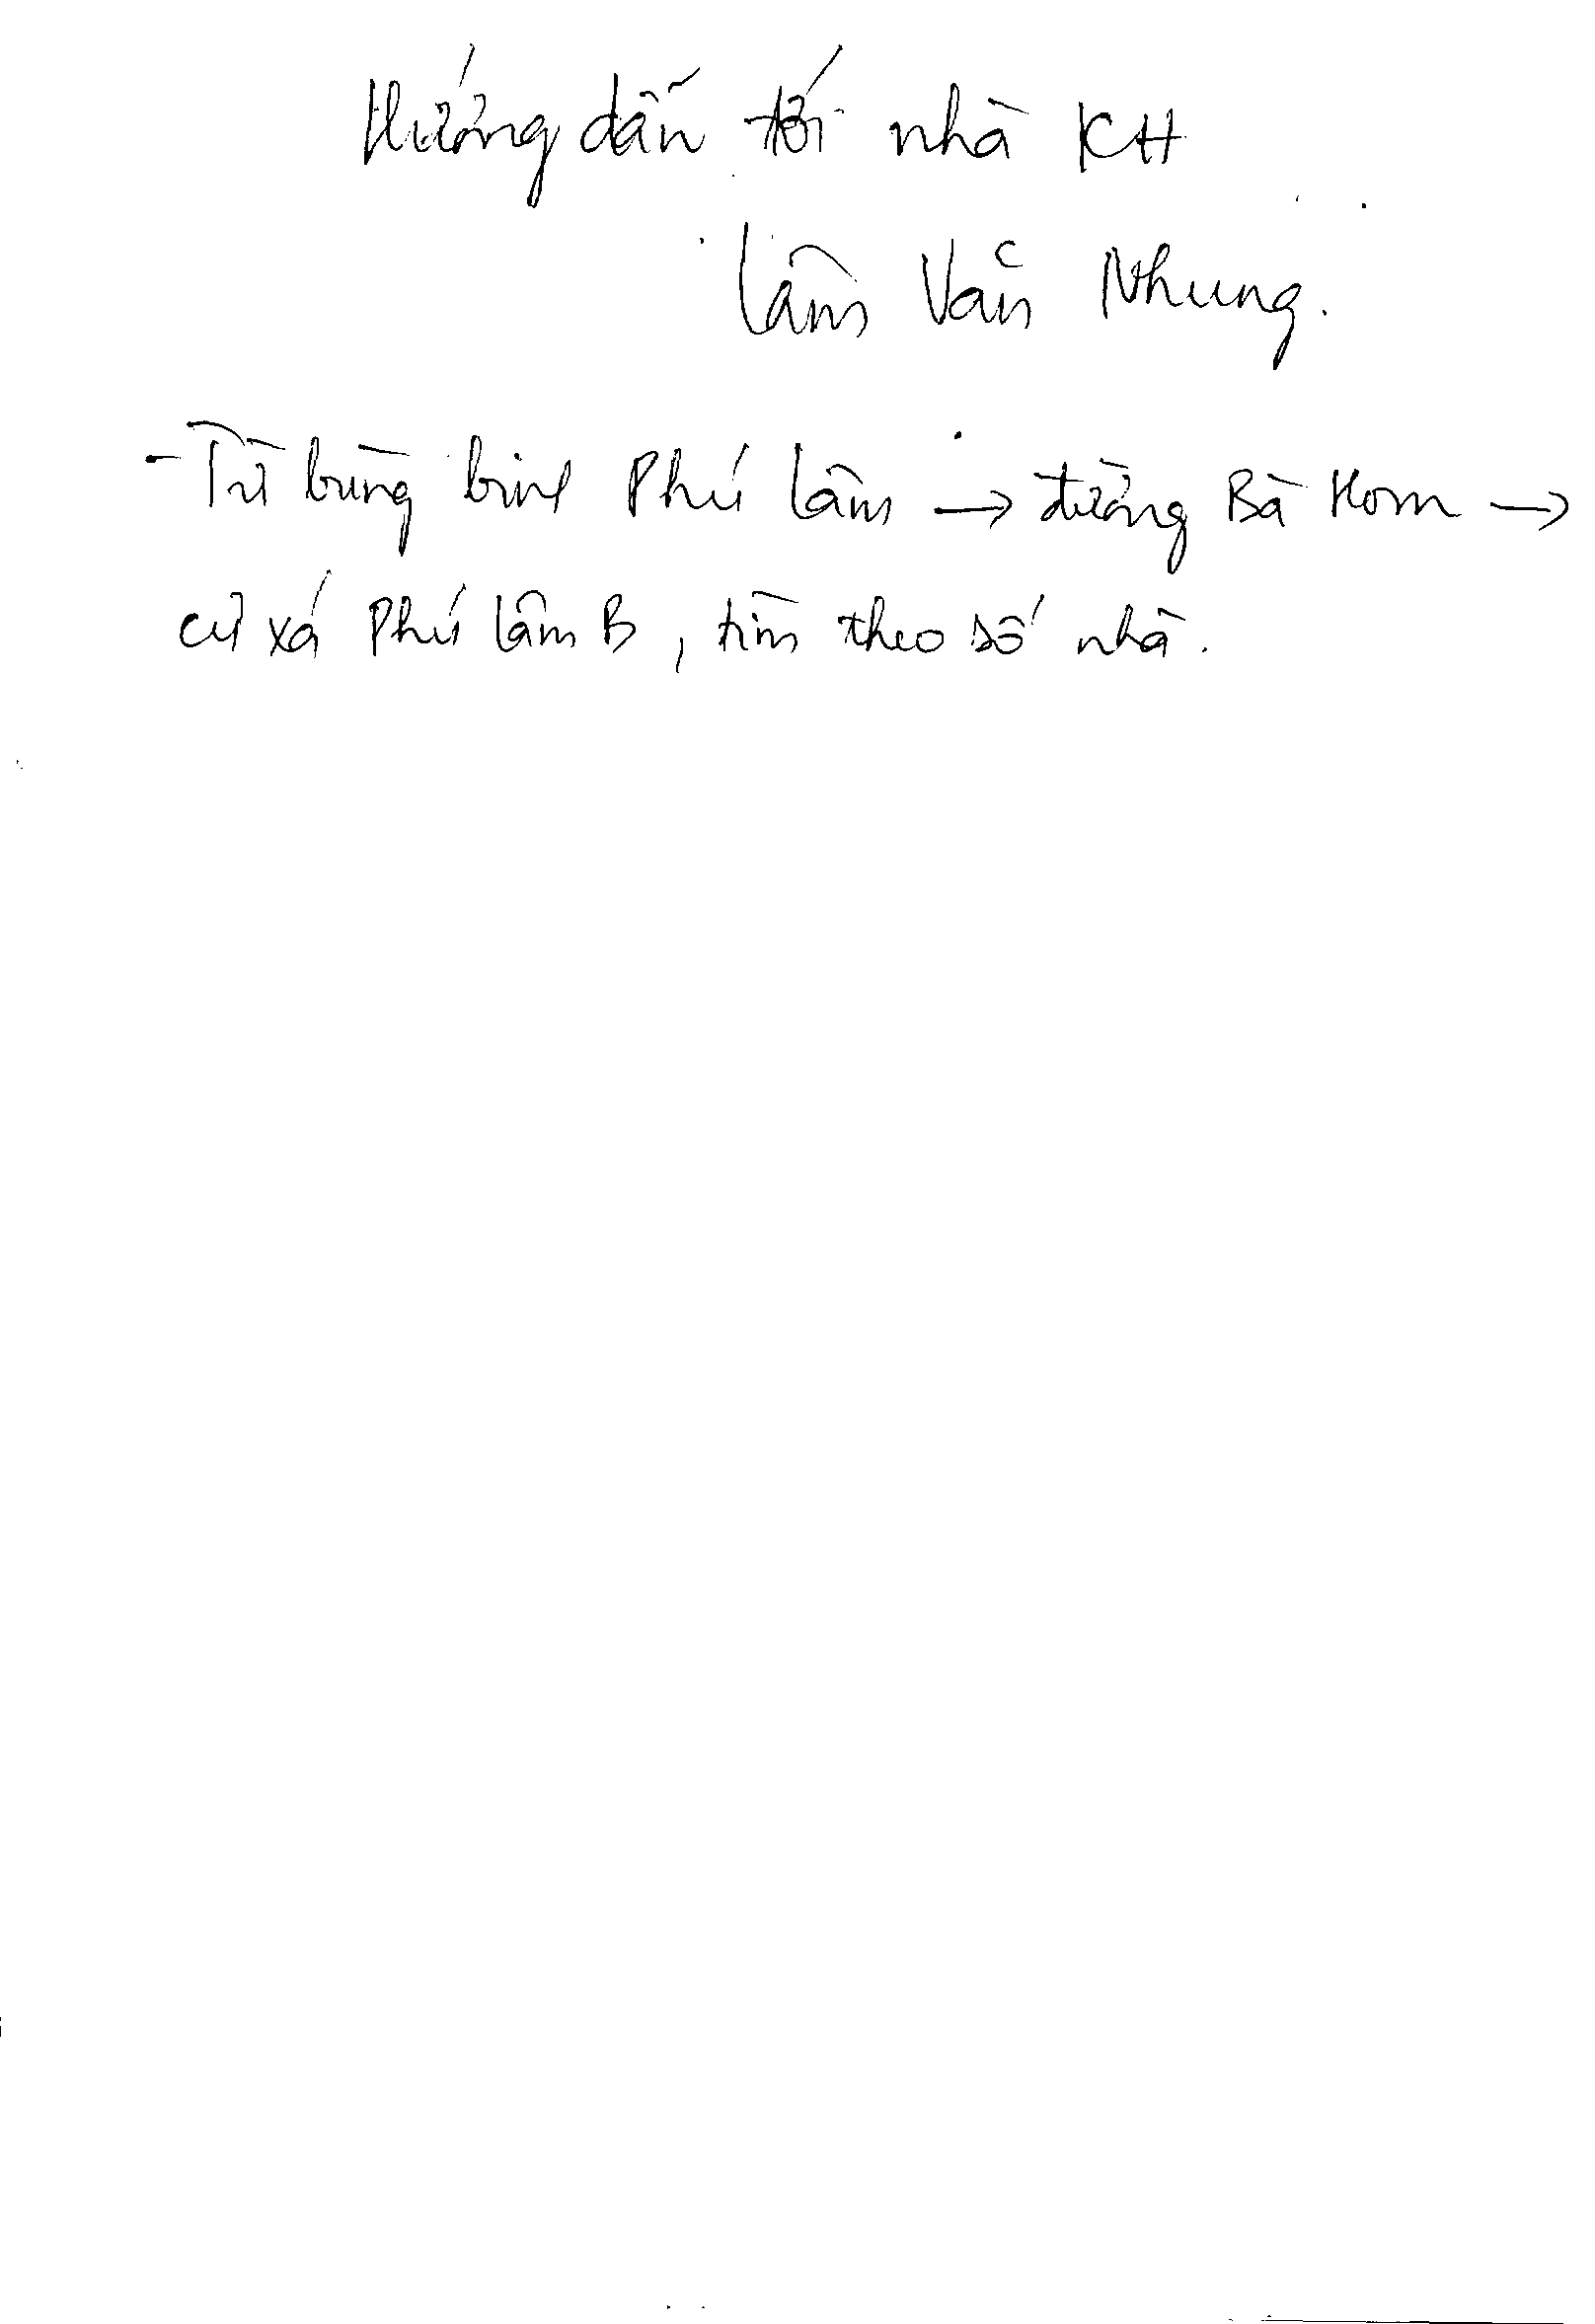 Hướng dẫn tới nhà KH
Lâm Văn Nhung.
- Từ bùng binh Phú Lâm → đường Bà Hom →
cư xá Phú Lâm B, tìm theo số nhà.